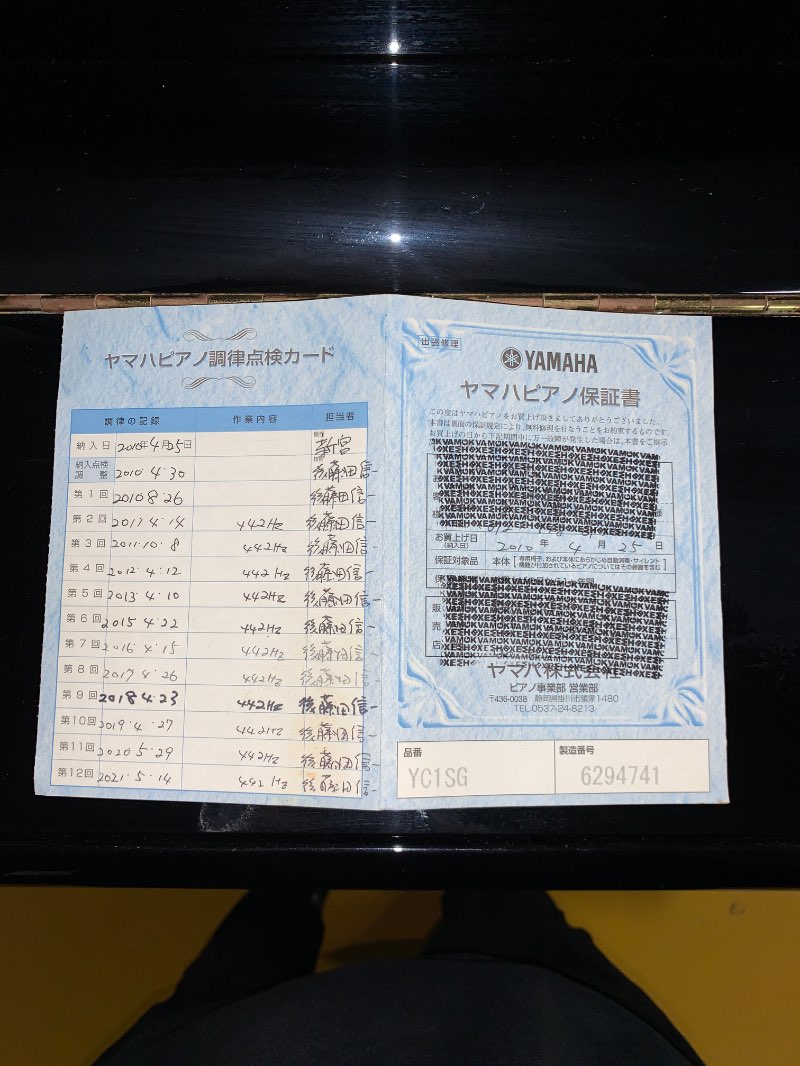 ヤマハピアノ調律点検カード
調律の記録 作業内容 担当者
納入日 2010年4月25日 新宮
納入点検調整 2010. 4. 30 後藤田信一
第1回 2010 8.26 後藤田信一
第2回 2011 4.14 442Hz 後藤田信一
第3回 2011.10.8 442Hz 後藤田信一
第4回 2012.4.12 442Hz 後藤田信一
第5回 2013.4.10 442Hz 後藤田信一
第6回 2015 4.22 442Hz 後藤田信一
第7回 2016 4.15 442Hz 後藤田信一
第8回 2017 4.26 442Hz 後藤田信一
第9回 2018 4.23 442Hz 後藤田信一
第10回 2019.4.27 442Hz 後藤田信一
第11回 2020 5.29 442Hz 後藤田信一
第12回 2021.5.14 442Hz 後藤田信一
出張修理
YAMAHA
ヤマハピアノ保証書
この度はヤマハピアノをお買上げ頂きましてありがとうございました。
本書は裏面の保証規定により、無料修理を行なうことをお約束するものです。
お買上げの日から下記期間中に万一故障が発生した場合は、本書をご提示
お買上げ日
(納入日) 2010 年 4 月 25 日
保証対象品 本体 [専用椅子、および本体にあらかじめ自動演奏・サイレント
機能が付加されているピアノについてはその装置を含む]
販
売
店
ヤマハ株式会社
ピアノ事業部 営業部
〒436-0038 静岡県掛川市領家1480
TEL.0537-24-8213
品番 YC1SG
製造番号 6294741